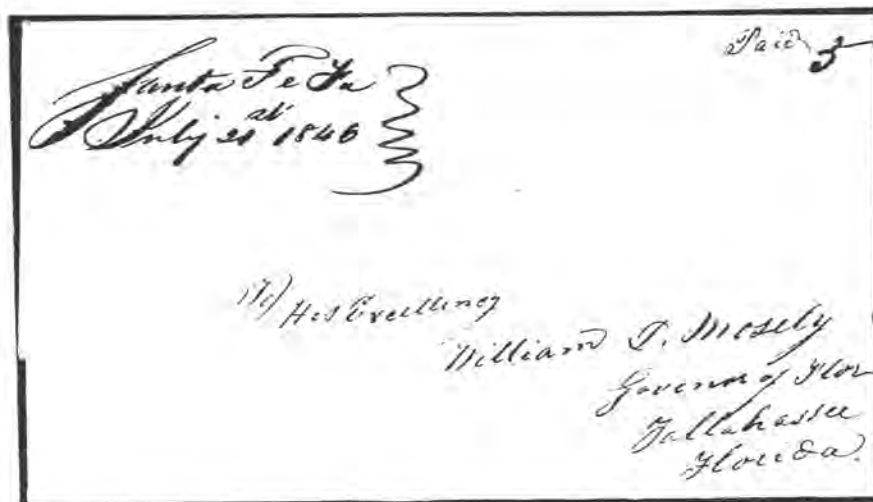 Santa Fe Fa
July 21st 1846
Paid 5
(To) His Excellency
William D. Mosely
Govenor of Flor
Tallahassee
Florida.